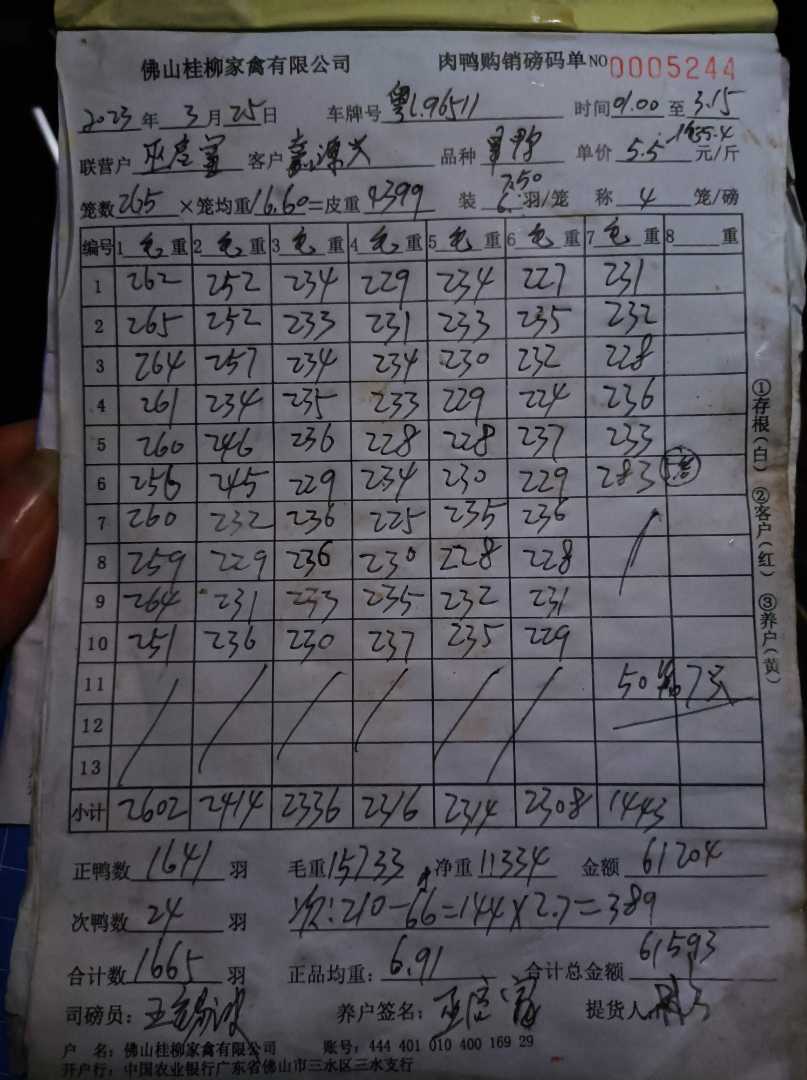 佛山桂柳家禽有限公司 肉鸭购销磅码单 NO 0005244
2023 年 3 月 25 日 车牌号 粤L96511 时间 01.00 至 3.15
联营户 客户 品种 单价 5.5 元/斤
笼数 265 ×笼均重 16.60 =皮重 4399 装 7.50 羽/笼 称 4 笼/磅
编号 1 毛 重 2 毛 重 3 毛 重 4 毛 重 5 毛 重 6 毛 重 7 毛 重 8 重
1 262 252 234 229 234 227 231
2 265 252 233 231 233 235 232
3 264 257 234 234 230 232 228
4 261 234 235 233 229 224 236
5 260 246 236 228 228 237 233
6 256 245 229 234 230 229 283
7 260 232 236 225 235 236
8 259 229 236 230 228 228
9 264 231 233 235 232 231
10 251 236 230 237 235 229
11 50
12
13
小计 2602 2414 2336 2316 2314 2308 1443
①存根(白) ②客户(红) ③养户(黄)
正鸭数 1641 羽 毛重 15733 净重 11334 金额 61204
次鸭数 24 羽 次:210-66=144×2.7=389
合计数 1665 羽 正品均重: 6.91 合计总金额 61593
司磅员: 养户签名: 提货人:
户 名: 佛山桂柳家禽有限公司 账号: 444 401 010 400 169 29
开户行: 中国农业银行广东省佛山市三水区三水支行